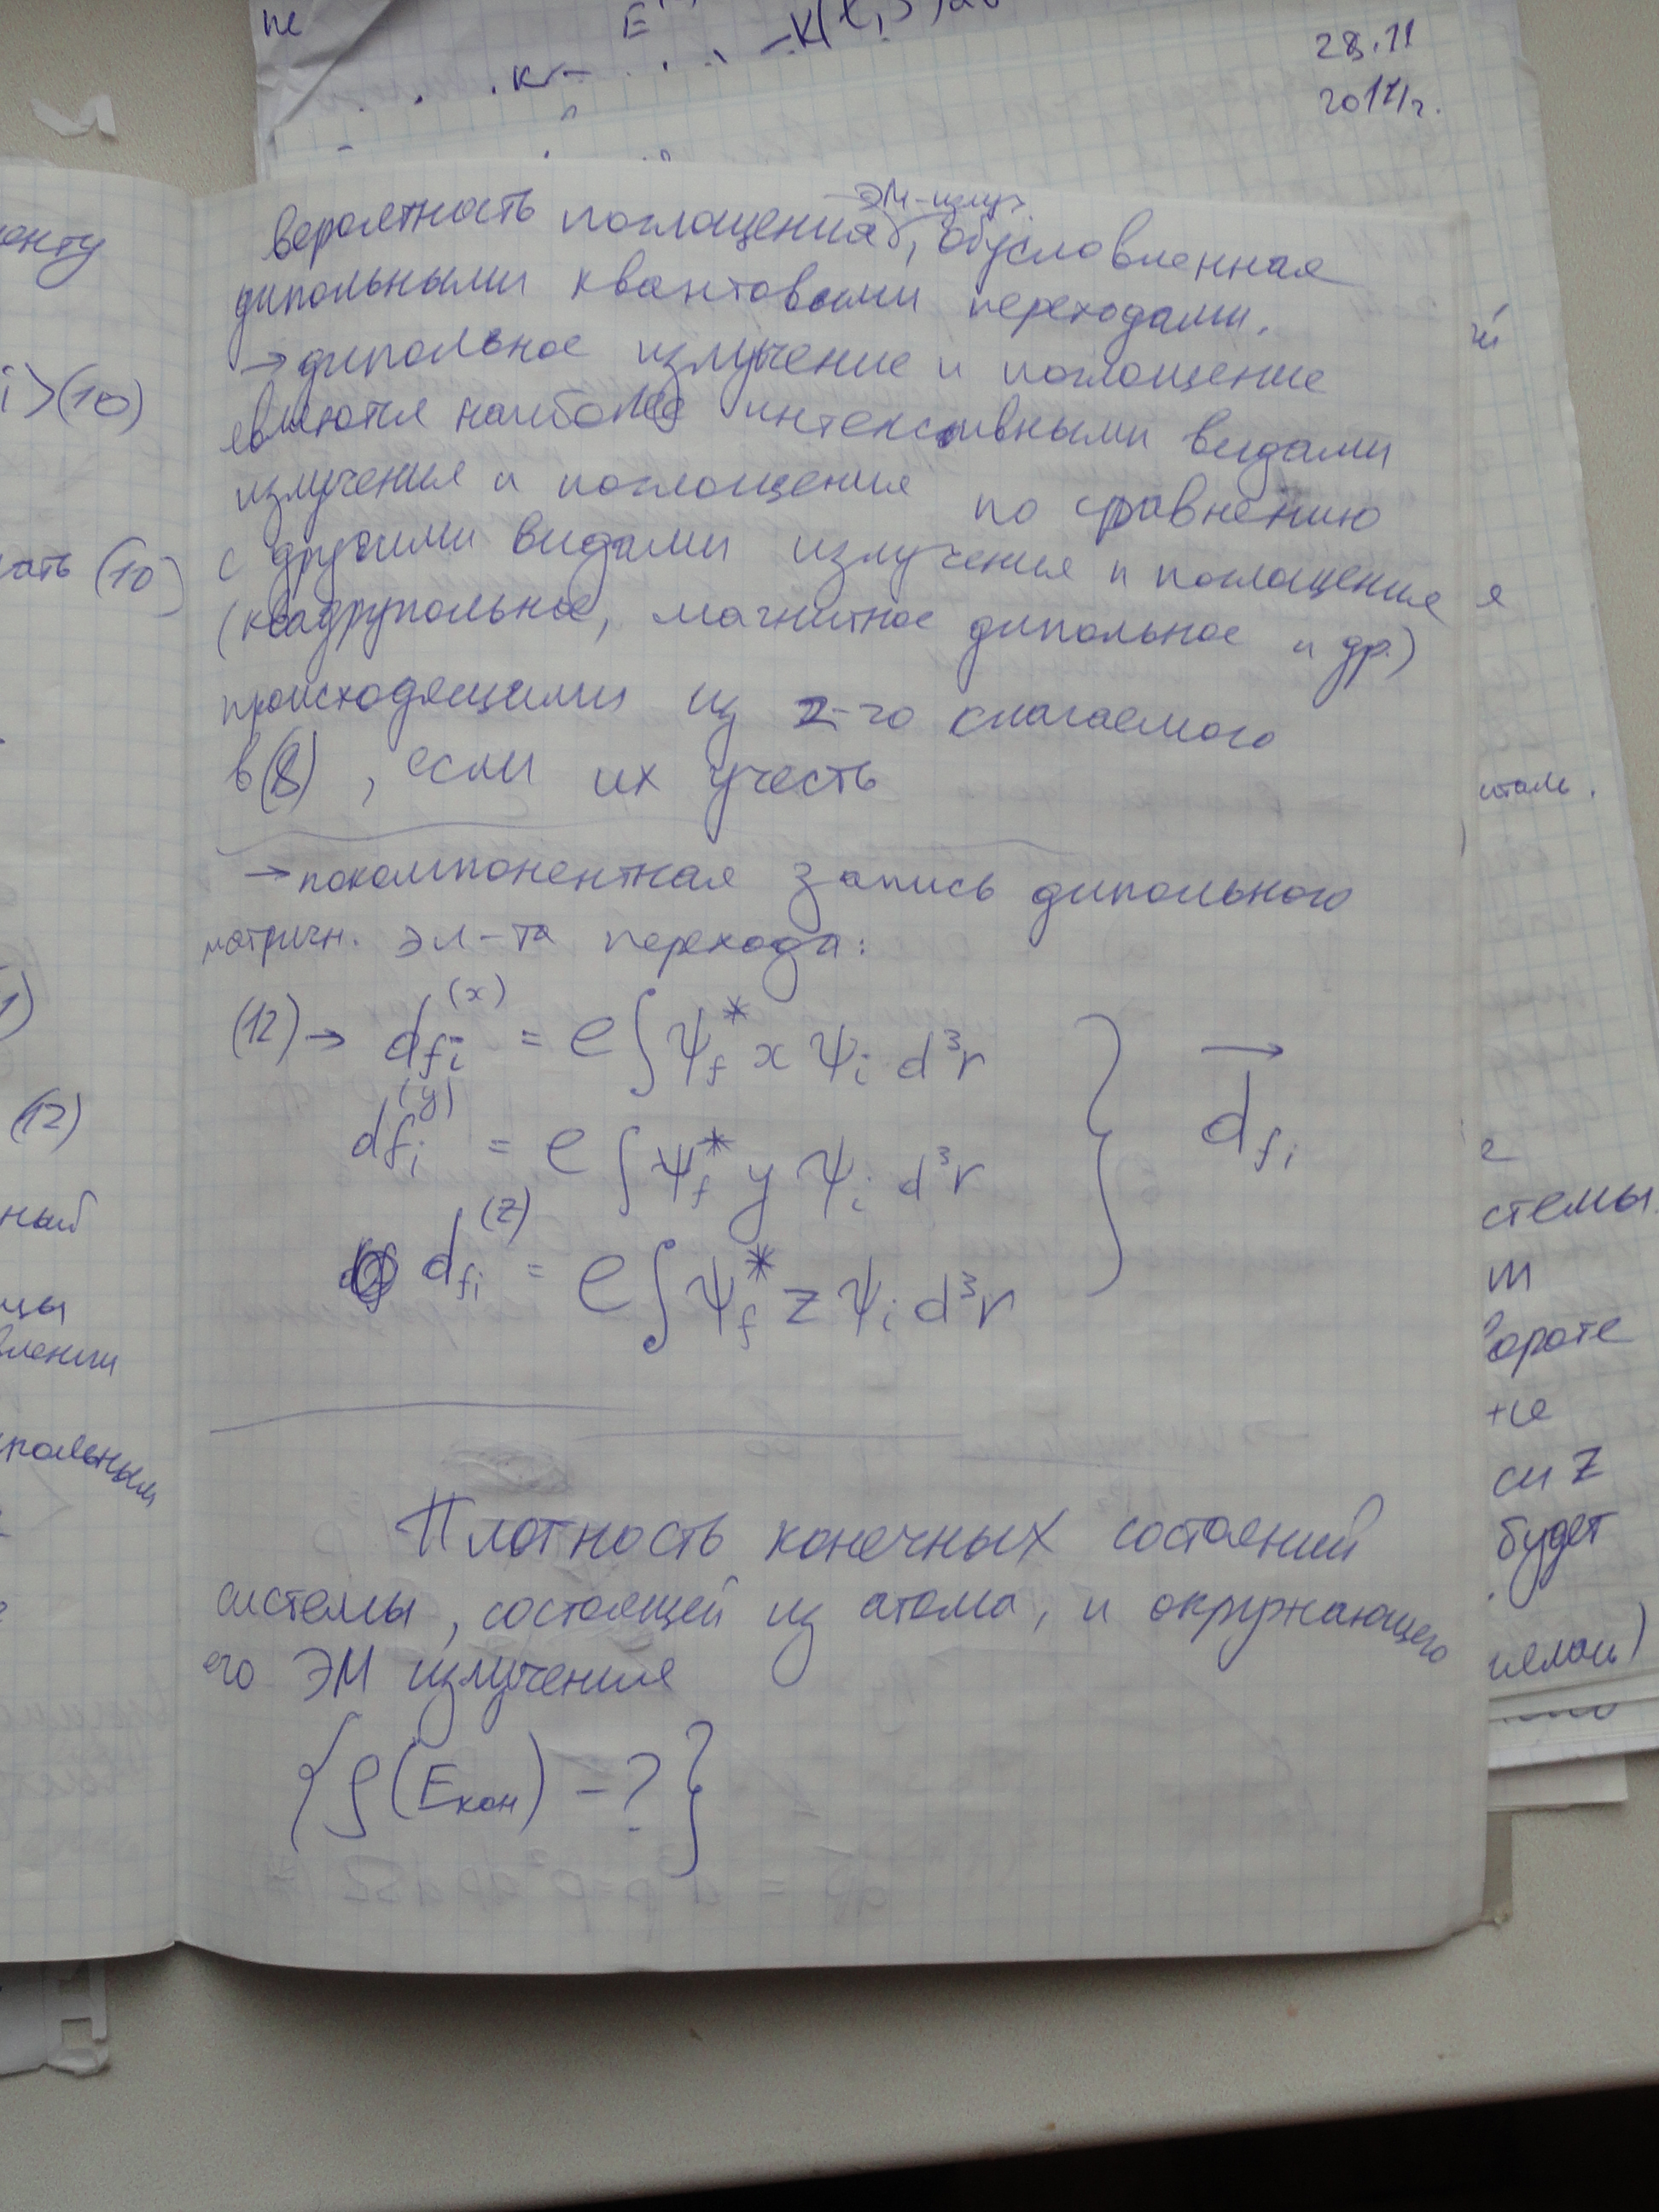 28.11
2017г.
вероятность поглощения ЭМ-излуч., обусловленная
дипольными квантовыми переходами.
→ дипольное излучение и поглощение
являются наиболее интенсивными видами
излучения и поглощения по сравнению
с другими видами излучения и поглощения
(квадрупольное, магнитное дипольное и др.)
происходящими из 2-го слагаемого
в (8), если их учесть
→ покомпонентная запись дипольного
матричн. эл-та перехода:
(12) → d_{fi}^{(x)} = e∫ψ_f^* x ψ_i d³r
d_{fi}^{(y)} = e∫ψ_f^* y ψ_i d³r
d_{fi}^{(z)} = e∫ψ_f^* z ψ_i d³r
} \vec{d}_{fi}
Плотность конечных состояний
системы, состоящей из атома, и окружающего
его ЭМ излучения
{ρ(E_{кон}) - ?}
i>(10)
(10)
(12)
стемы
си z
будет